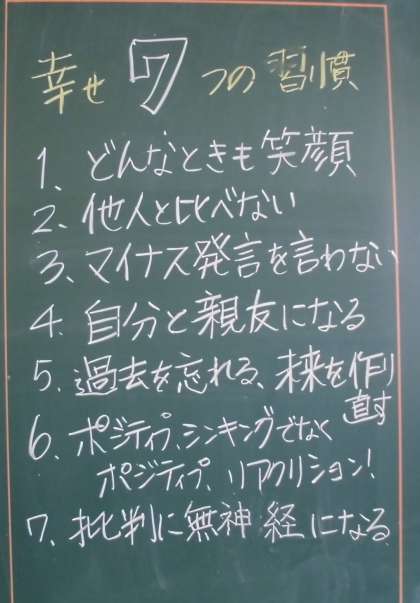 幸せ 7つの習慣
1、どんなときも笑顔
2、他人と比べない
3、マイナス発言を言わない
4、自分と親友になる
5、過去を忘れる、未来を作り
直す
6、ポジティブ、シンキングでなく
ポジティブ、リアクリション!
7、批判に無神経になる